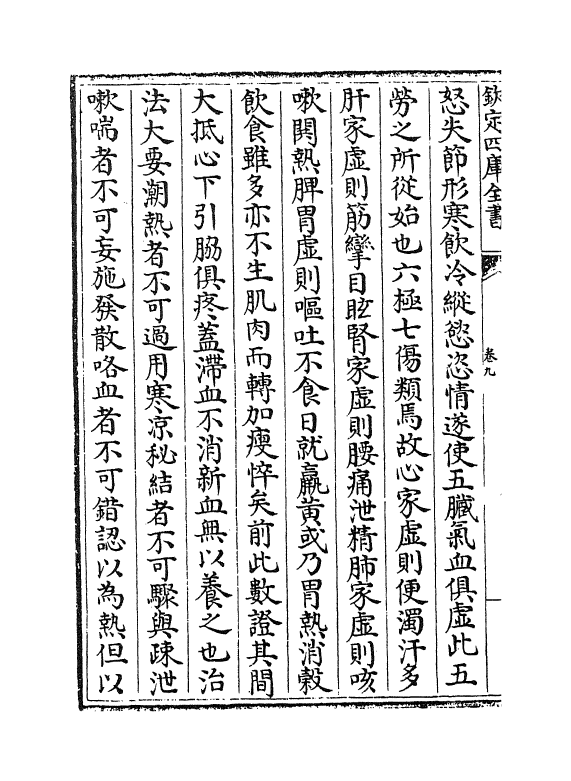 欽定四庫全書
卷九
怒失節形寒飲冷縱慾恣情遂使五臟氣血俱虛此五
勞之所從始也六極七傷類焉故心家虛則便濁汗多
肝家虛則筋攣目眩腎家虛則腰痛泄精肺家虛則咳
嗽閧熱脾胃虛則嘔吐不食日就羸黃或乃胃熱消穀
飲食雖多亦不生肌肉而轉加瘦悴矣前此數證其間
大抵心下引脇俱疼蓋滯血不消新血無以養之也治
法大要潮熱者不可過用寒凉秘結者不可驟與疎泄
嗽喘者不可妄施發散咯血者不可錯認以為熱但以